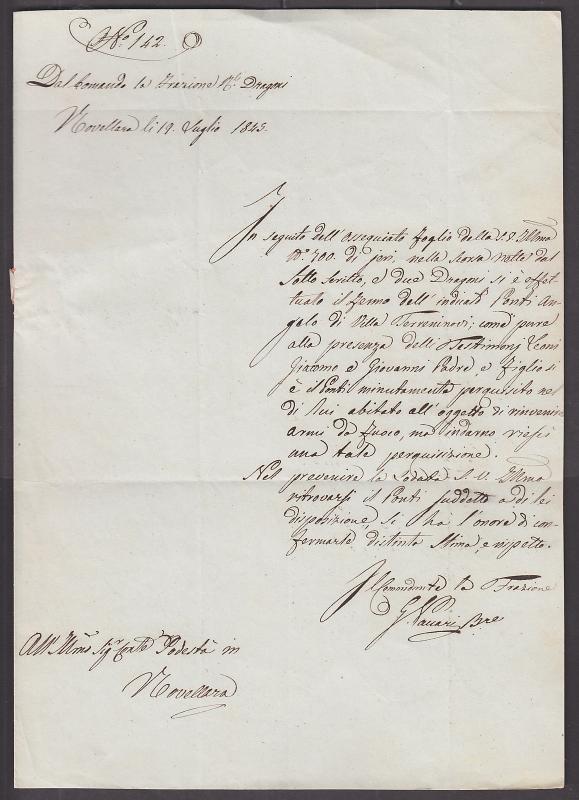 N.° 142.
Dal Comando la Frazione R.i Dragoni
Novellara li 19. Luglio 1845.
In seguito dell'ossequiato foglio della S.V. Illma
N.° 700. di jeri, nella scorsa notte dal
Sotto Scritto, e due Dragoni si è effet-
tuato il fermo dell'indicato Ponti An-
gelo di Villa Terreninovi; come pure
alla presenza delli Testimonj Leoni
Giacomo e Giovanni Padre, e figlio si
è il Ponti minutamente perquisito nel
di lui abitato all'oggetto di rinvenire
armi da fuoco, ma indarno riescì
una tale perquisizione.
Nel prevenire la Lodata S.V. Illma
ritrovarsi il Ponti suddetto a di lei
disposizione, si ha l'onore di con-
fermarle distinta stima, e rispetto.
Il Comandante la Frazione
All' Illmo Sig.r Conte Podestà in
Novellara